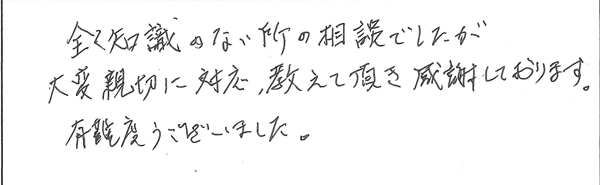 全く知識のない所の相談でしたが
大変親切に対応,教えて頂き感謝しております。
有難度うございました。